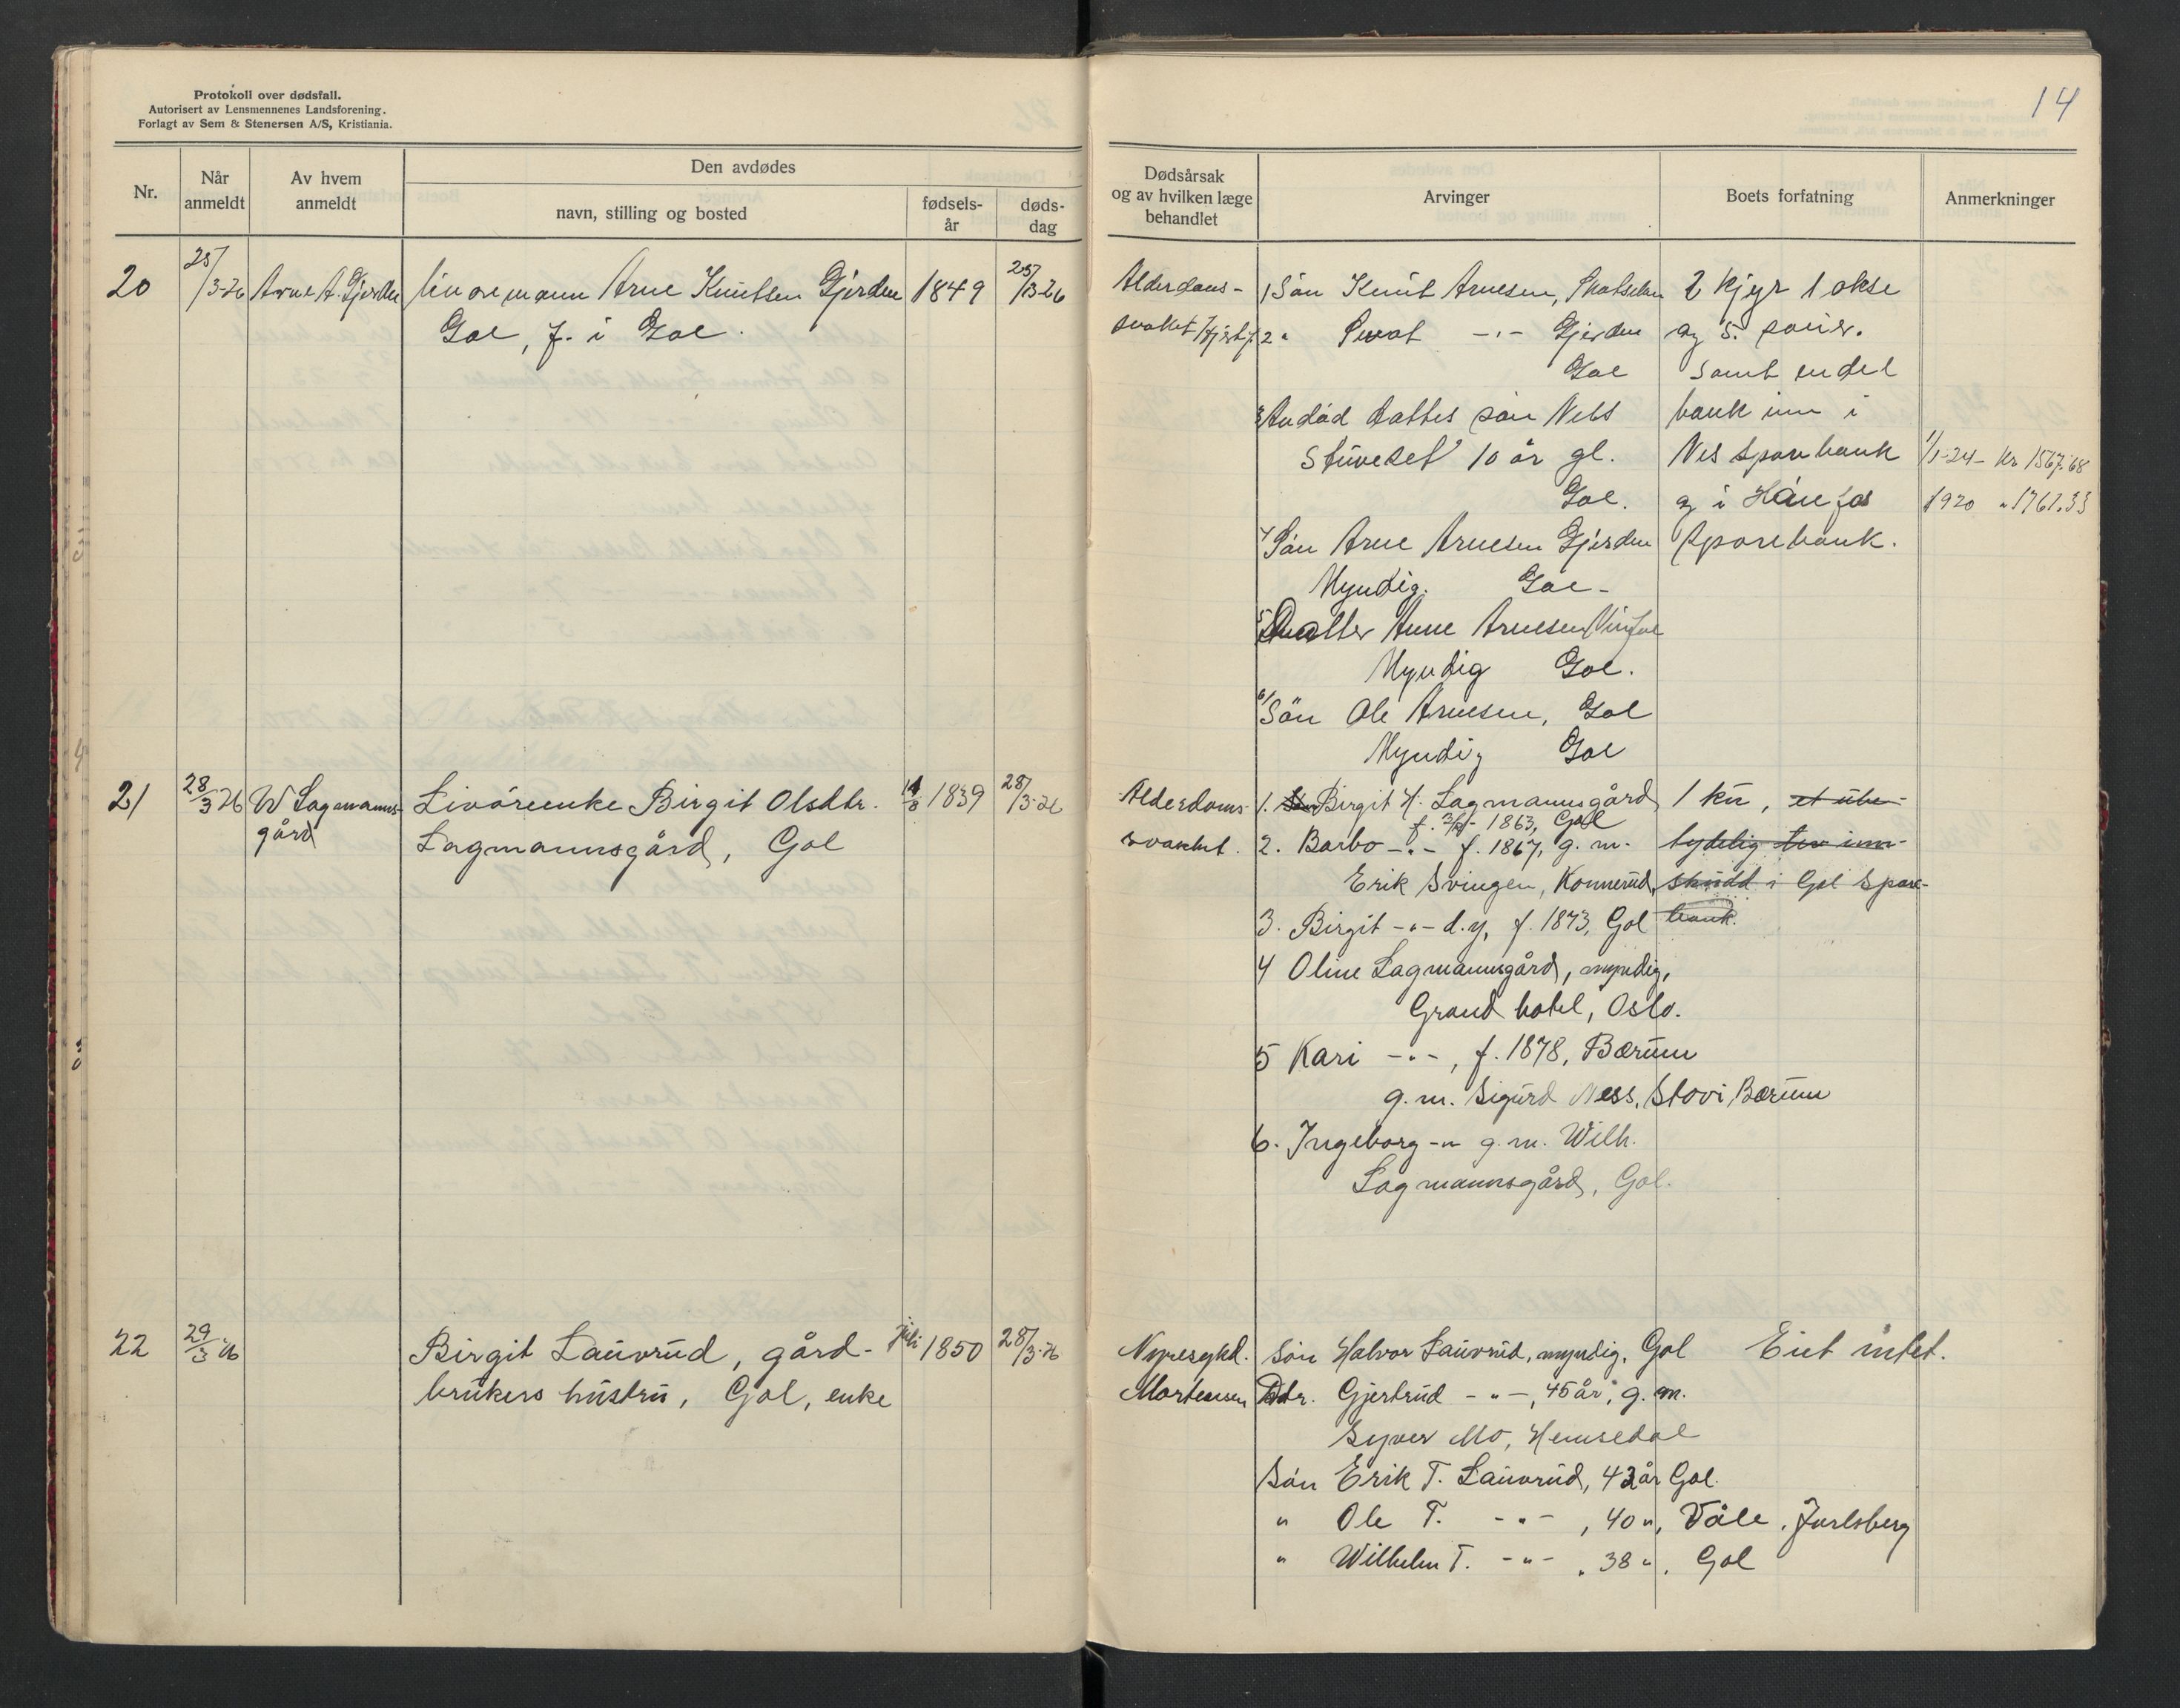 Protokoll over dødsfall.
Autorisert av Lensmennenes Landsforening.
Forlagt av Sem & Stenersen A/S, Kristiania.
Nr.
Når anmeldt
Av hvem anmeldt
Den avdødes
navn, stilling og bosted
fødsels-år
døds-dag
20 25/3-26 Arne A. Gjerden Livøremann Arne Knutsen Gjerden 1849 25/3-26
Gol, f. i Gol.
21 28/3 26 W Lagmanns- Livøreenke Birgit Olsdtr. 1839 28/3-26
gård Lagmannsgård, Gol
22 29/3 26 Birgit Lauvrud, gård- juli 1850 28/3-26
brukers hustru, Gol, enke
14
Dødsårsak
og av hvilken læge
behandlet
Arvinger
Boets forfatning
Anmerkninger
Alderdoms- 1 Søn Knut Arnesen, 2 kjyr 1 okse
svakhet 2 " -"- Gjerden og 5 souer.
Gol samt endel
3 Avdød datters søn Nils bank inn i
10 år gl. Nes sparebank 1/1-24- Kr 1567.68
Gol. og i Hønefos 1920 " 1761.33
4 Søn Arne Arnesen Gjerden Sparebank.
Myndig. Gol-
5 Datter Anne Arnesen
Myndig Gol.
6/ Søn Ole Arnesen, Gol
Myndig Gol
Alderdoms- 1. Birgit H. Lagmannsgård, 1 ku, et ube-
f. 1863, Gol
svakhet. 2. Barbo -"- f. 1867, g. m. tydelig inn-
Erik Svingen, Konnerud, skudd i Gol Spare-
3. Birgit -"- d.y, f. 1873, Gol bank.
4 Oline Lagmannsgård, myndig,
Grand hotel, Oslo.
5 Kari -"-, f. 1878, Bærum
g. m. Sigurd Ness, Stovi Bærum
6. Ingeborg -"- g. m. Wilh.
Lagmannsgård, Gol.
Nyresykd. Søn Halvor Lauvrud, myndig, Gol Eiet intet.
Mortensen Dtr. Gjertrud -"-, 45 år, g. m.
Syver Mo, Hemsedal
Søn Erik T. Lauvrud, 42 år Gol.
" Ole T. -"-, 40 ", Våle, Jarlsberg
" Wilhelm T. -"-, 38 ", Gol